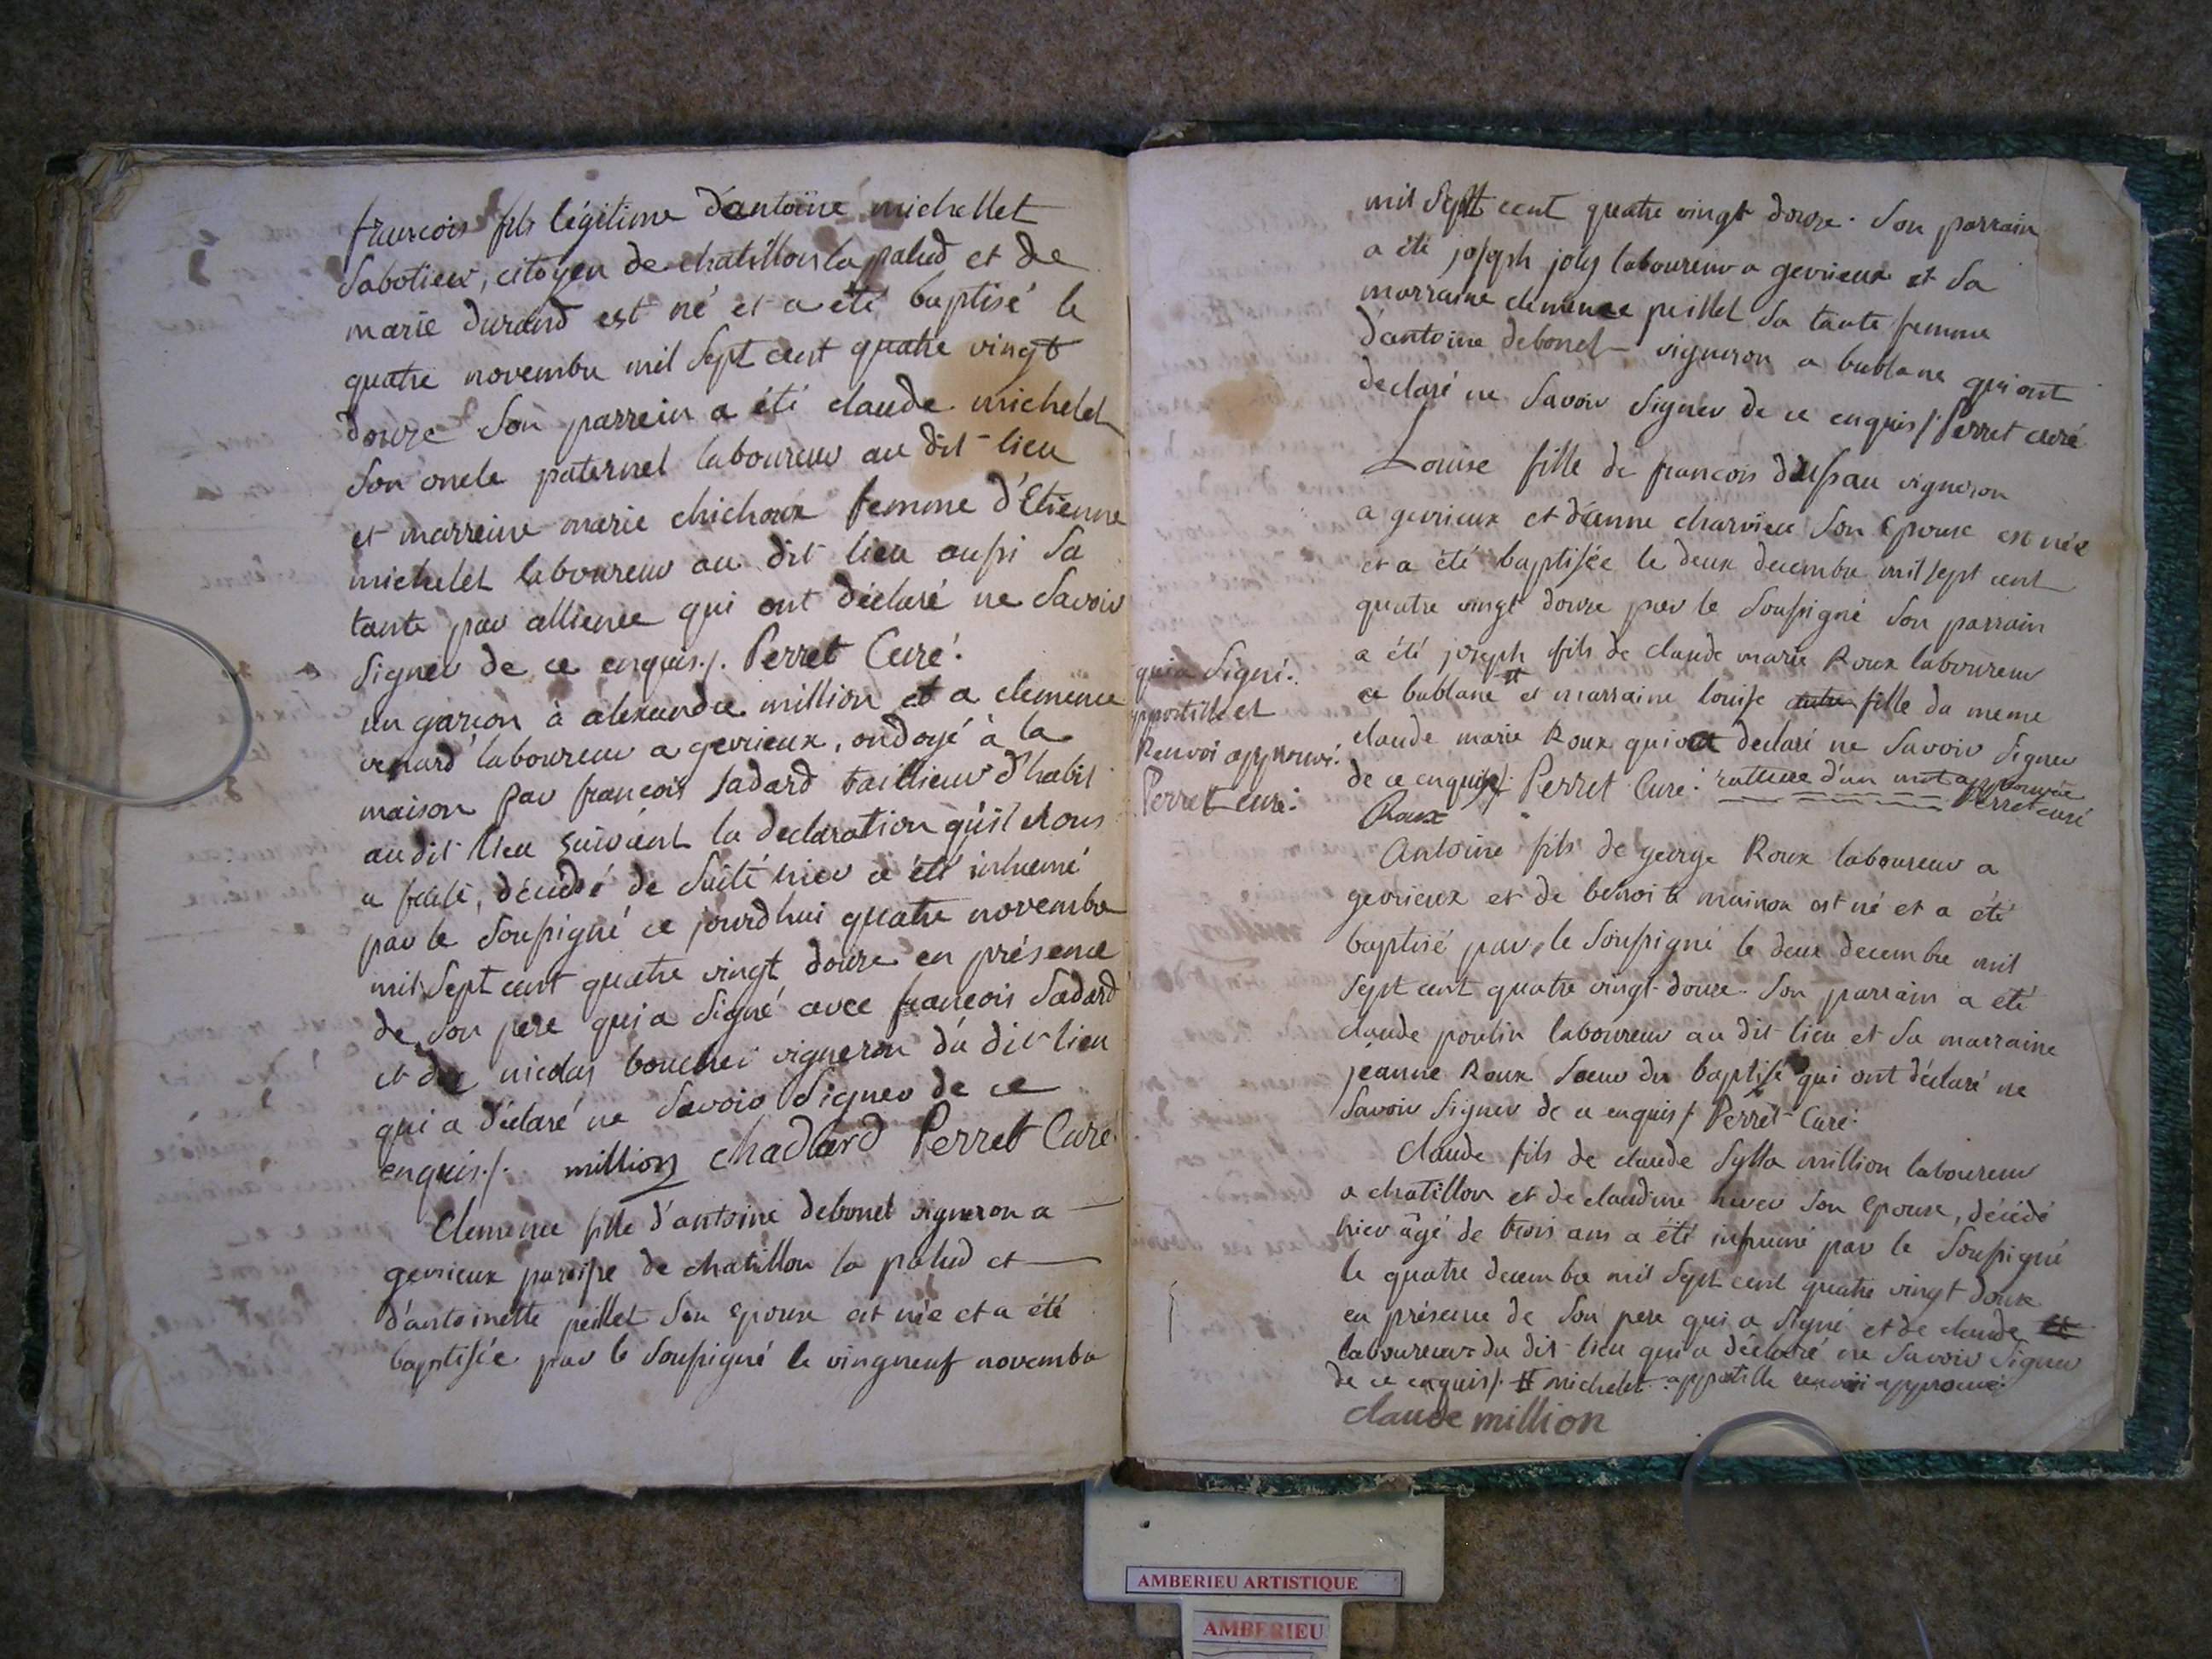 francois fils légitime d'antoine michellet
Sabotier, citoyen de chatillon la palud et de
marie durand est né et a été baptisé le
quatre novembre mil Sept cent quatre vingt
douze Son parrein a été claude michelet
Son oncle paternel laboureur au dit lieu
et marreine marie chichoux femme d'Etienne
michelet laboureur au dit lieu aussi Sa
tante par allience qui ont déclaré ne Savoir
Signer de ce enquis ./. Perret Curé.
un garcon à alexandre million et a clemence
venard laboureur a gevrieux, ondoyé à la
maison par francois Sadard taillieur d'habit
au dit lieu Suivant la declaration qu'il nous
a faite, décédé de Suite hier a été inhumé
par le Soussigné ce jourd'hui quatre novembre
mil Sept cent quatre vingt douze en présence
de Son pere qui a Signé avec francois Sadard
et de nicolas bouchei vigneron du dit lieu
qui a déclaré ne Savoir Signer de ce
enquis ./. million chadard Perret Curé
Clemence fille d'antoine debonel vigneron a
gevrieux paroisse de chatillon la palud et
d'antoinette peillet Son epouse est née et a été
baptisée par le Soussigné le vingneuf novembre
mil Sept cent quatre vingt douze. Son parrain
a été joseph joly laboureur a gevrieux et Sa
marraine clemence peillet Sa tante femme
d'antoine debonel vigneron a bublane qui ont
declaré ne Savoir Signer de ce enquis ./. Perret curé
Louise fille de francois dussau vigneron
a gevrieux et d'anne charvieu Son Epouse est née
et a été baptisée le deux decembre mil sept cent
quatre vingt douze par le Soussigné Son parrain
a été joseph fils de claude marie Roux laboureur
a bublane # et marraine louise fille du meme
claude marie Roux qui a declaré ne Savoir Signer
de ce enquis ./. Perret Curé. rature d'un mot approuvée
Perret curé
Roux
qui a Signé.
appostille et
Renvoi approuvé.
Perret curé.
Antoine fils de george Roux laboureur a
gevrieux et de benoite mainon est né et a été
baptisé par le Soussigné le deux decembre mil
Sept cent quatre vingt douze. Son parrain a été
claude poulin laboureur au dit lieu et Sa marraine
jeanne Roux Soeur du baptisé qui ont déclaré ne
Savoir Signer de ce enquis ./. Perret Curé.
Claude fils de claude Sylla million laboureur
a chatillon et de claudine Son epouse, décédé
hier âgé de trois ans a été inhumé par le Soussigné
le quatre decembre mil Sept cent quatre vingt douze
en présence de Son pere qui a Signé et de claude #
laboureur du dit lieu qui a déclaré ne Savoir Signer
de ce enquis ./. # michelet appostille renvoi approuvé.
claude million
AMBERIEU ARTISTIQUE
AMBERIEU